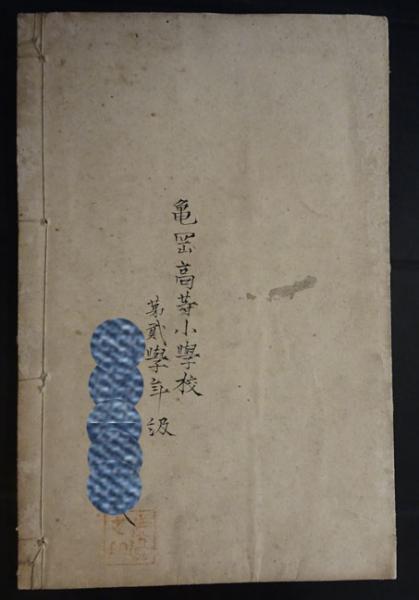 亀岡高等小學校
第貳學年級